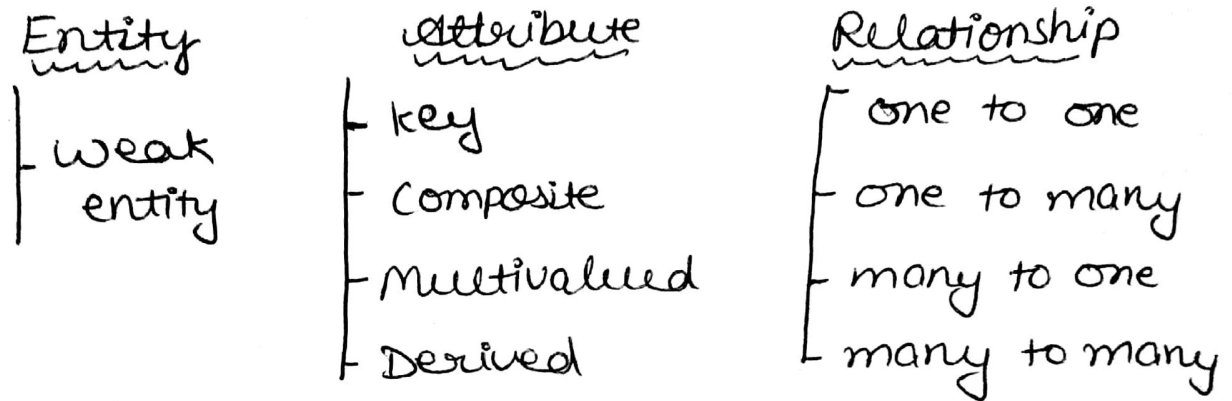 Entity
weak
entity
Attribute
key
Composite
Multivalued
Derived
Relationship
one to one
one to many
many to one
many to many